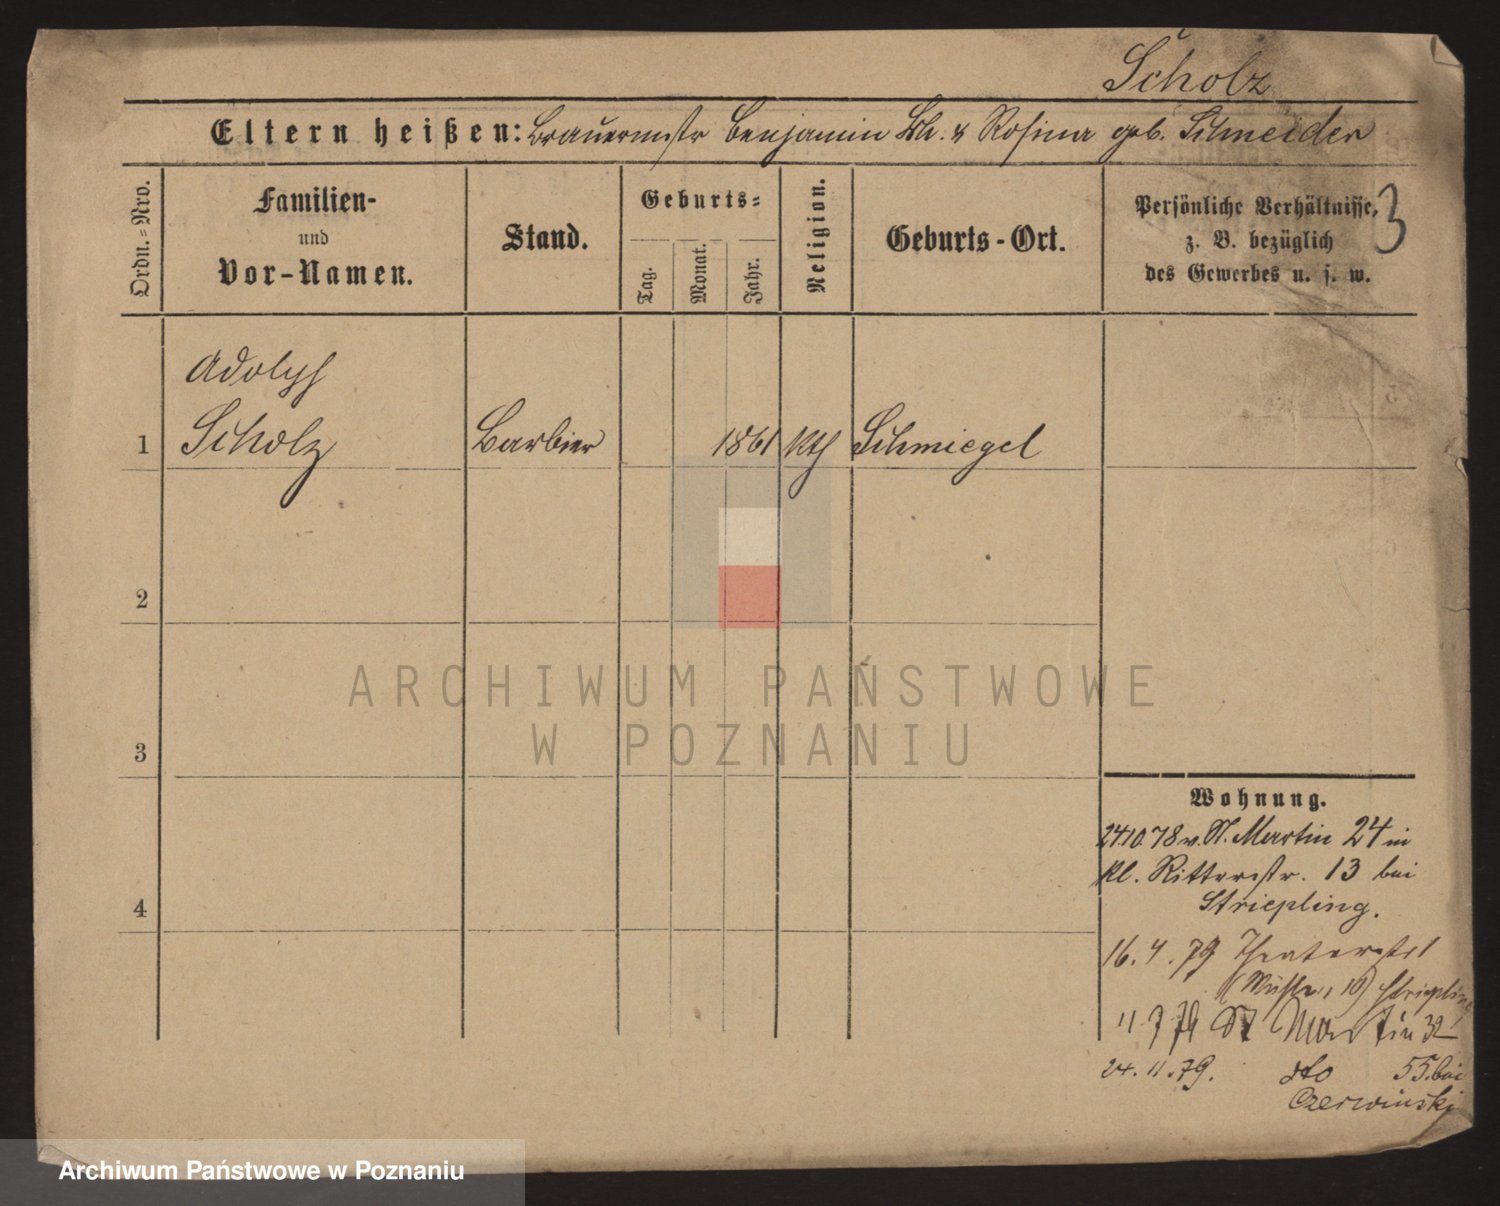 Scholz
Eltern heißen: Brauermstr Benjamin Sch. & Rosina geb. Schneider
Ordn.=Nro.
Familien-
und
Vor-Namen.
Stand.
Geburts=
Tag.
Monat.
Jahr.
Religion.
Geburts-Ort.
Persönliche Verhältnisse,
z. B. bezüglich
des Gewerbes u. s. w.
3
Adolph
1 Scholz Barbier 1861 kth Schmiegel
2
3
4
Wohnung.
24.10.78 v. St. Martin 24 in
kl. Ritterstr. 13 bei
Striepling.
16. 4. 79 Theaterstr
10) Striepling
11.7.79 St Martin 32
24. 11. 79. dto 55. bei
Czerwinski
ARCHIWUM PAŃSTWOWE
W POZNANIU
Archiwum Państwowe w Poznaniu